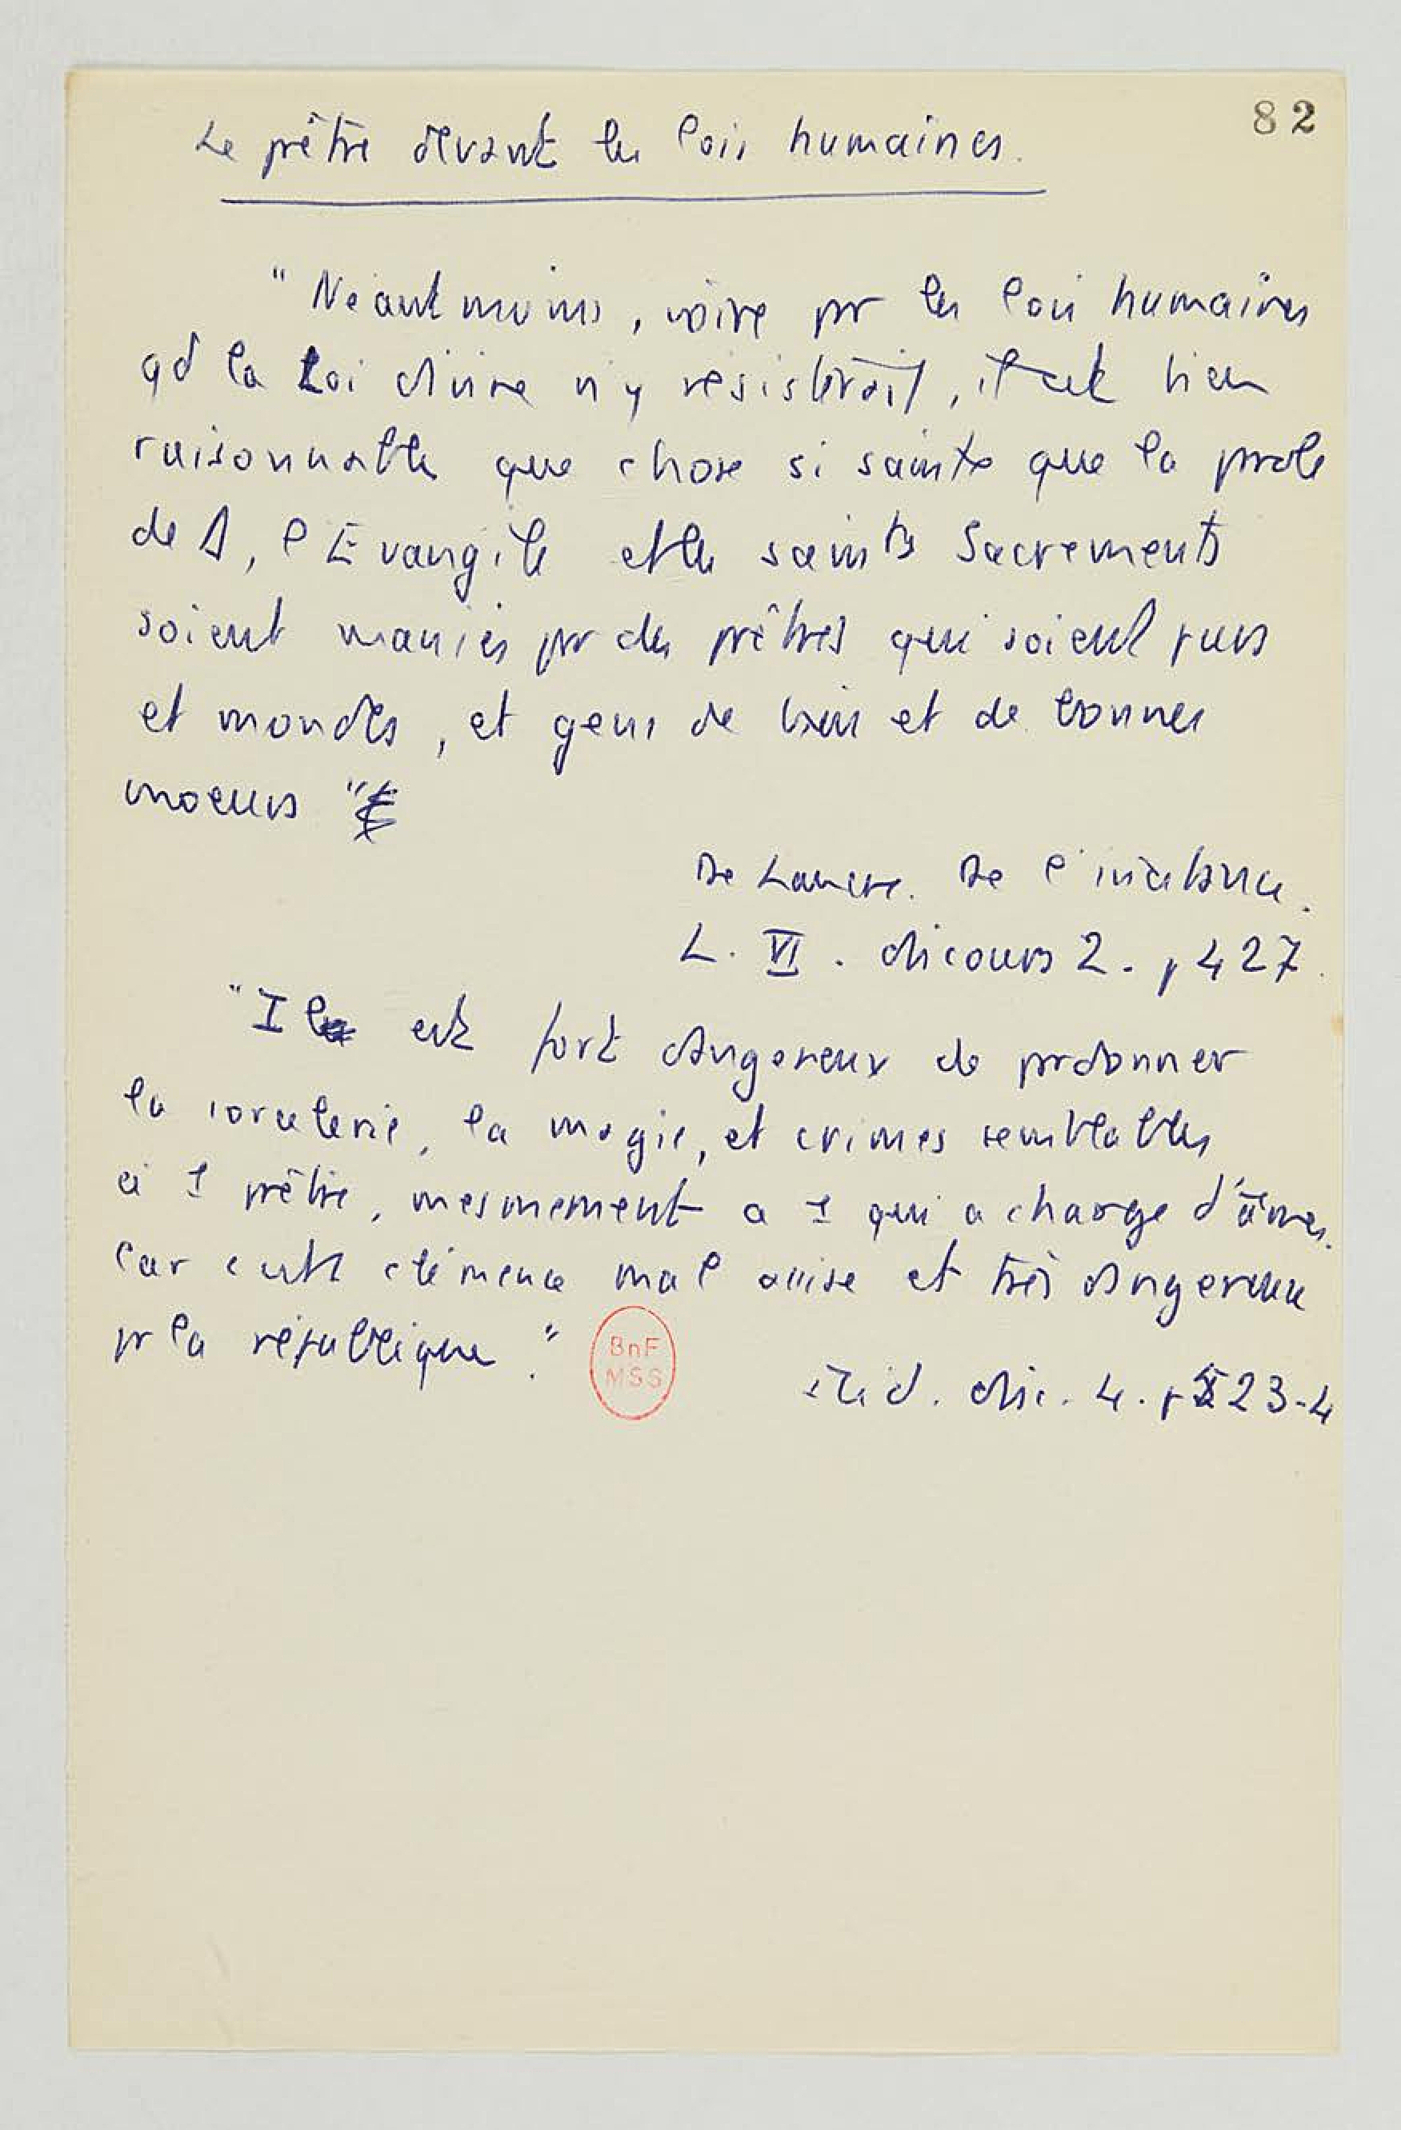 82
Le prêtre devant les lois humaines.
" Néantmoins, voire pr les lois humaines
qd la Loi divine n'y résisterait, il est bien
raisonnable que chose si sainte que la parole
de Δ, l'Evangile et les saints Sacrements
soient maniés par des prêtres qui soient purs
et mondes, et gens de bien et de bonnes
moeurs "
De Lancre. De l'inconstance.
L. VI. discours 2. p 427.
"Il est fort dangereux de pardonner
la sorcellerie, la magie, et crimes semblables
à 1 prêtre, mesmement a 1 qui a charge d'âmes.
Car c'est clémence mal assise et très dangereuse
pr la république."
BnF
MSS
ibid. disc. 4. p 523-4